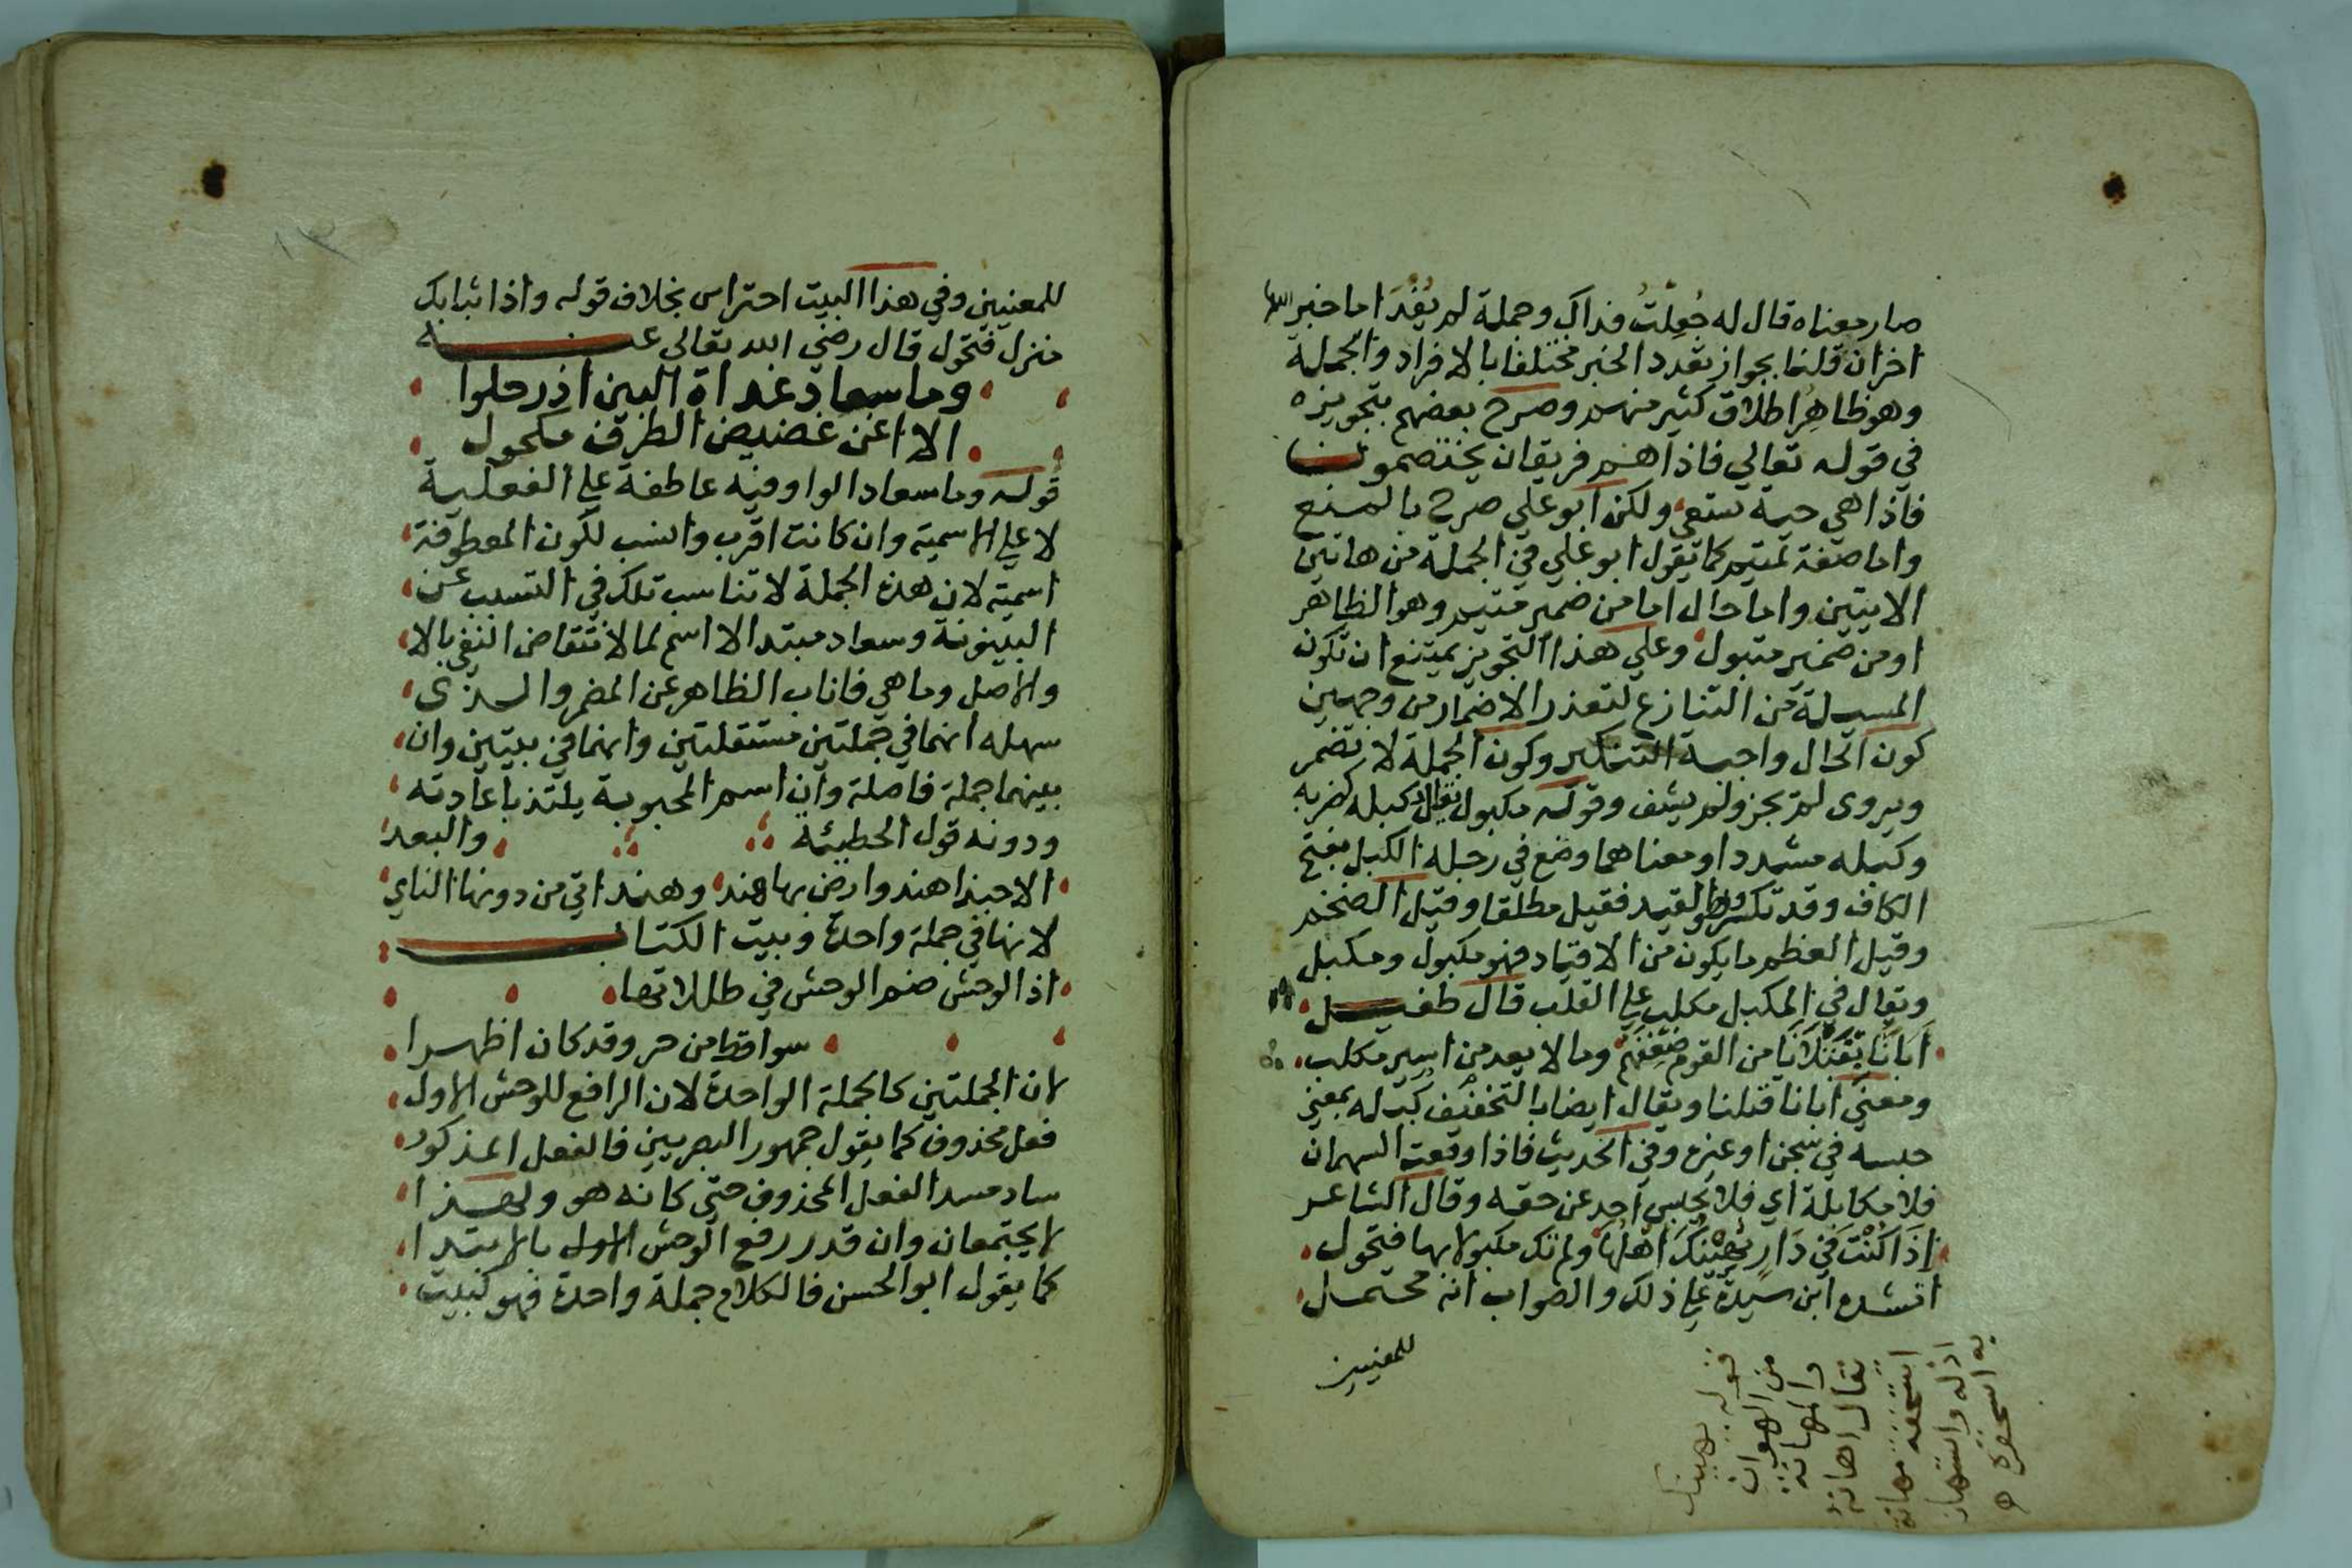 صار معناه قال له جُعِلتُ فداك وجملة لم يُفْدَ اما خبر
اخران قلنا بجواز تعدد الخبر مختلفا بالافراد والجملة
وهو ظاهر اطلاق كثير منهم وصرح بعضهم بتجويزه
في قوله تعالي فاذا هم فريقان يختصمون
فاذا هي حية تسعي ولكن ابو علي صرح بالمنع
واما صفة لمتيم كما يقول ابو علي في الجملة من هاتين
الايتين واما حال اما من ضمير متيم وهو الظاهر
او من ضمير متبول وعلي هذا التجويز يمتنع ان تكون
المسيلة من التنازع لتعذر الاضمار من وجهين
كون الحال واجبة التنكير وكون الجملة لا تضمر
ويروى لم يجز ولم يشف وقوله مكبول يقال كبله كضربه
وكبله مشددا ومعناهما وضع في رجله الكبل بفتح
الكاف وقد تكسر وهو القيد فقيل مطلقا وقيل الضخم
وقيل اعظم ما يكون من الاقياد فهو مكبول ومكبل
ويقال في المكبل مكلب علي القلب قال طفيل
أبَانَا بِقَتْلَانَا من القوم ضِعْفَهُم وما لا يعد من اسير مكلب
ومعني ابانا قتلنا ويقال ايضا بالتخفيف كبله بمعني
حبسه في سجن او غيره وفي الحديث فاذا وقعت السهمان
فلا مكابلة اي فلا يحبس احد عن حقه وقال الشاعر
إذَا كُنْتَ في دَارٍ يُهِيْنُكَ اَهْلُهَا ولم تك مكبولا بها فتحول
انشده ابن سيدة علي ذلك والصواب انه محتمل
للمعنيين
قوله يهينك
من الهوان
والمهانة
يقال اهانة
استخفه مهانة
اذله واستهان
به استحقره ه
للمعنيين وفي هذا البيت احتراس بخلاف قوله واذا نبا بك
منزل فتحول قال رضي الله تعالي عنه
وما سعاد غداة البين اذ رحلوا
الا اغن غضيض الطرف مكحول
قوله وما سعاد الواو فيه عاطفة علي الفعلية
لا علي الاسمية وان كانت اقرب وانسب لكون المعطوفة
اسمية لان هذه الجملة لا تناسب تلك في التسبب عن
البينونة وسعاد مبتدا لا اسم لما لانتقاض النفي بالا
والاصل وما هي فاناب الظاهر عن المضمر والذي
سهله انهما في جملتين مستقلتين وانهما في بيتين وان
بينهما جملة فاصلة وان اسم المحبوبة يلتذ باعادته
ودونه قول الحطيئة والبعد
الا حبذا هند وارض بها هند وهند اتي من دونها الناي
لانها في جملة واحدة وبيت الكتاب
اذا الوحش ضم الوحش في ظللاتها
سواقط من حر وقد كان اظهرا
لان الجملتين كالجملة الواحدة لان الرافع للوحش الاول
فعل محذوف كما يقول جمهور البصريين فالفعل المذكور
ساد مسد الفعل المحذوف حتى كانه هو ولهذا
لا يجتمعان وان قدر رفع الوحش الاول بالابتدا
كما يقول ابو الحسن فالكلام جملة واحدة فهو كبيت